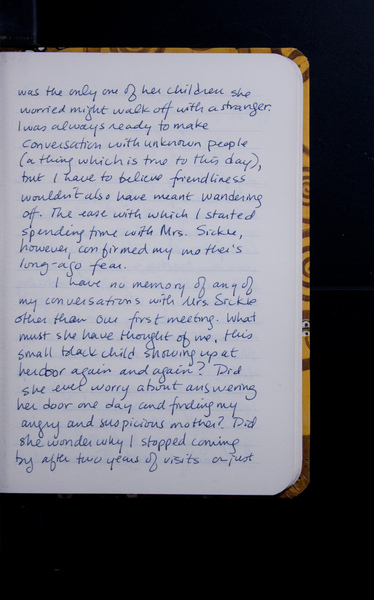 was the only one of her children she
worried might walk off with a stranger.
I was always ready to make
conversation with unknown people
(a thing which is true to this day),
but I have to believe friendliness
wouldn't also have meant wandering
off. The ease with which I started
spending time with Mrs. Sickle,
however, confirmed my mother's
long-ago fear.
I have no memory of any of
my conversations with Mrs. Sickle
other than our first meeting. What
must she have thought of me, this
small black child showing up at
her door again and again? Did
she ever worry about answering
her door one day and finding my
angry and suspicious mother? Did
she wonder why I stopped coming
by after two years of visits or just